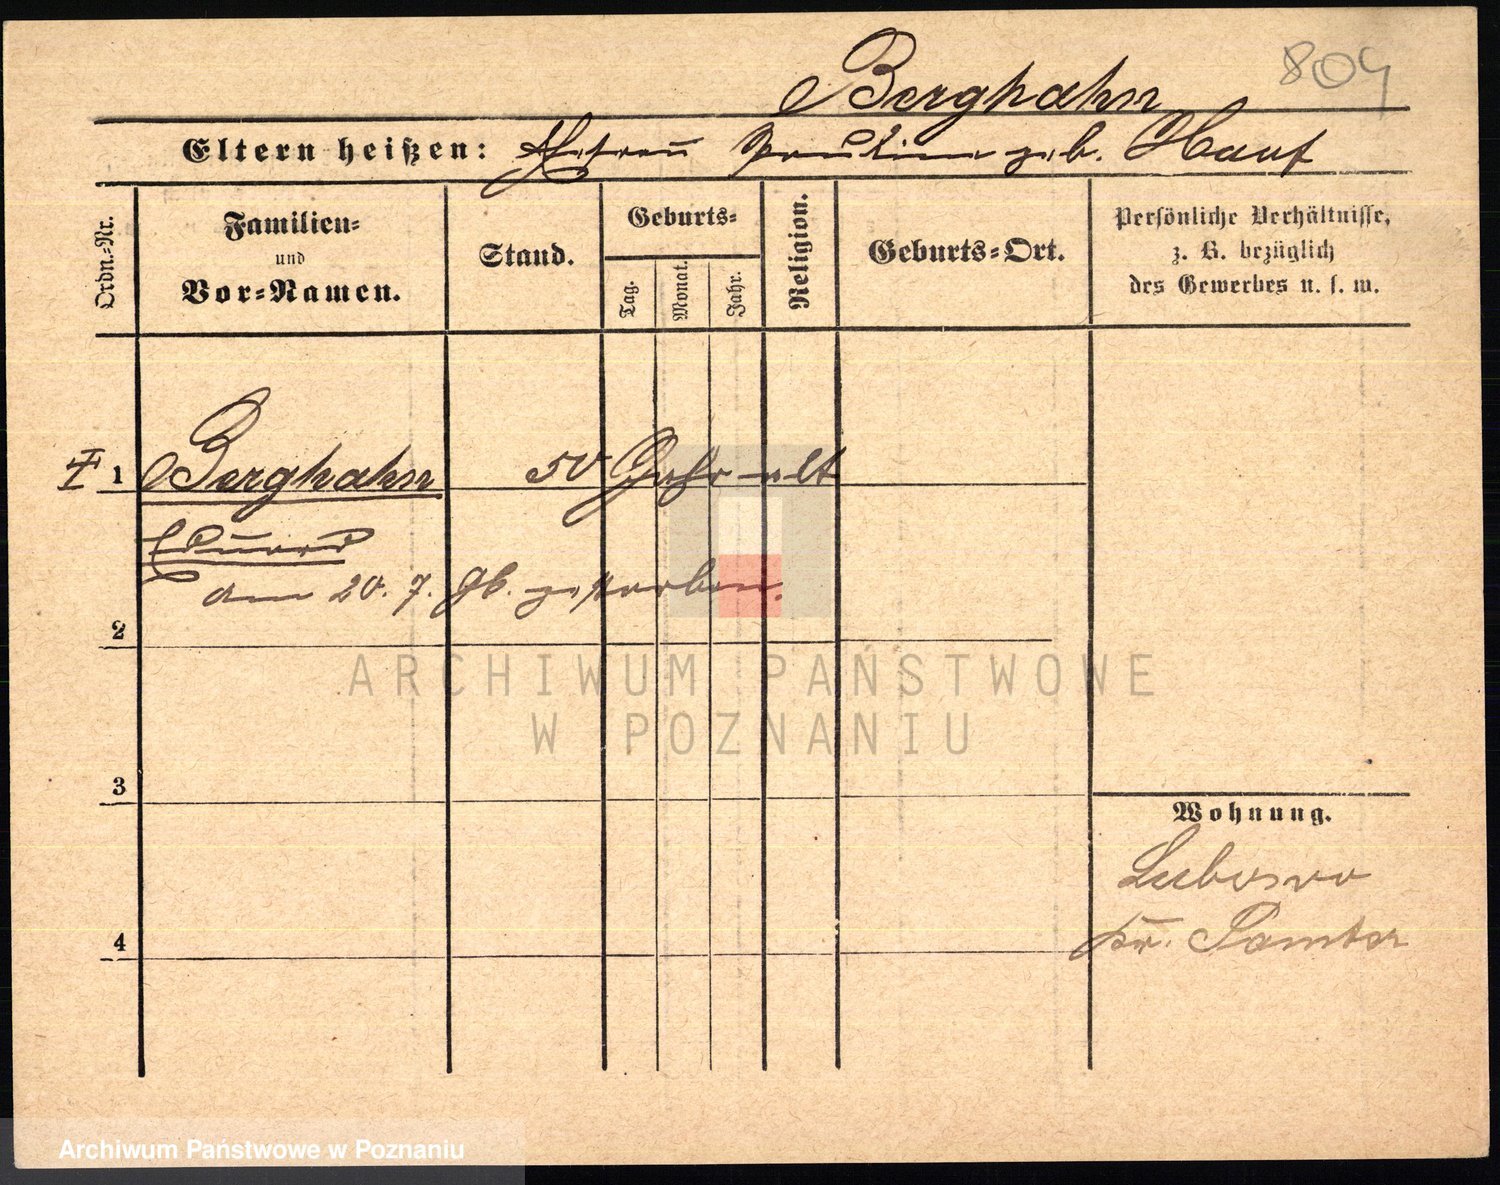 Berghahn
804
Eltern heißen: Ehefrau Pauline geb. Hauf
Ordn.-Nr.
Familien-
und
Vor-Namen.
Stand.
Geburts-
Tag.
Monat.
Jahr.
Religion.
Geburts-Ort.
Persönliche Verhältnisse,
z. B. bezüglich
des Gewerbes u. s. w.
1 Berghahn 50 Jahr alt
Eduard
am 20. 7. 96. gestorben.
2
ARCHIWUM PAŃSTWOWE
W POZNANIU
3
Wohnung.
Lubosno
Kr. Samter
4
Archiwum Państwowe w Poznaniu